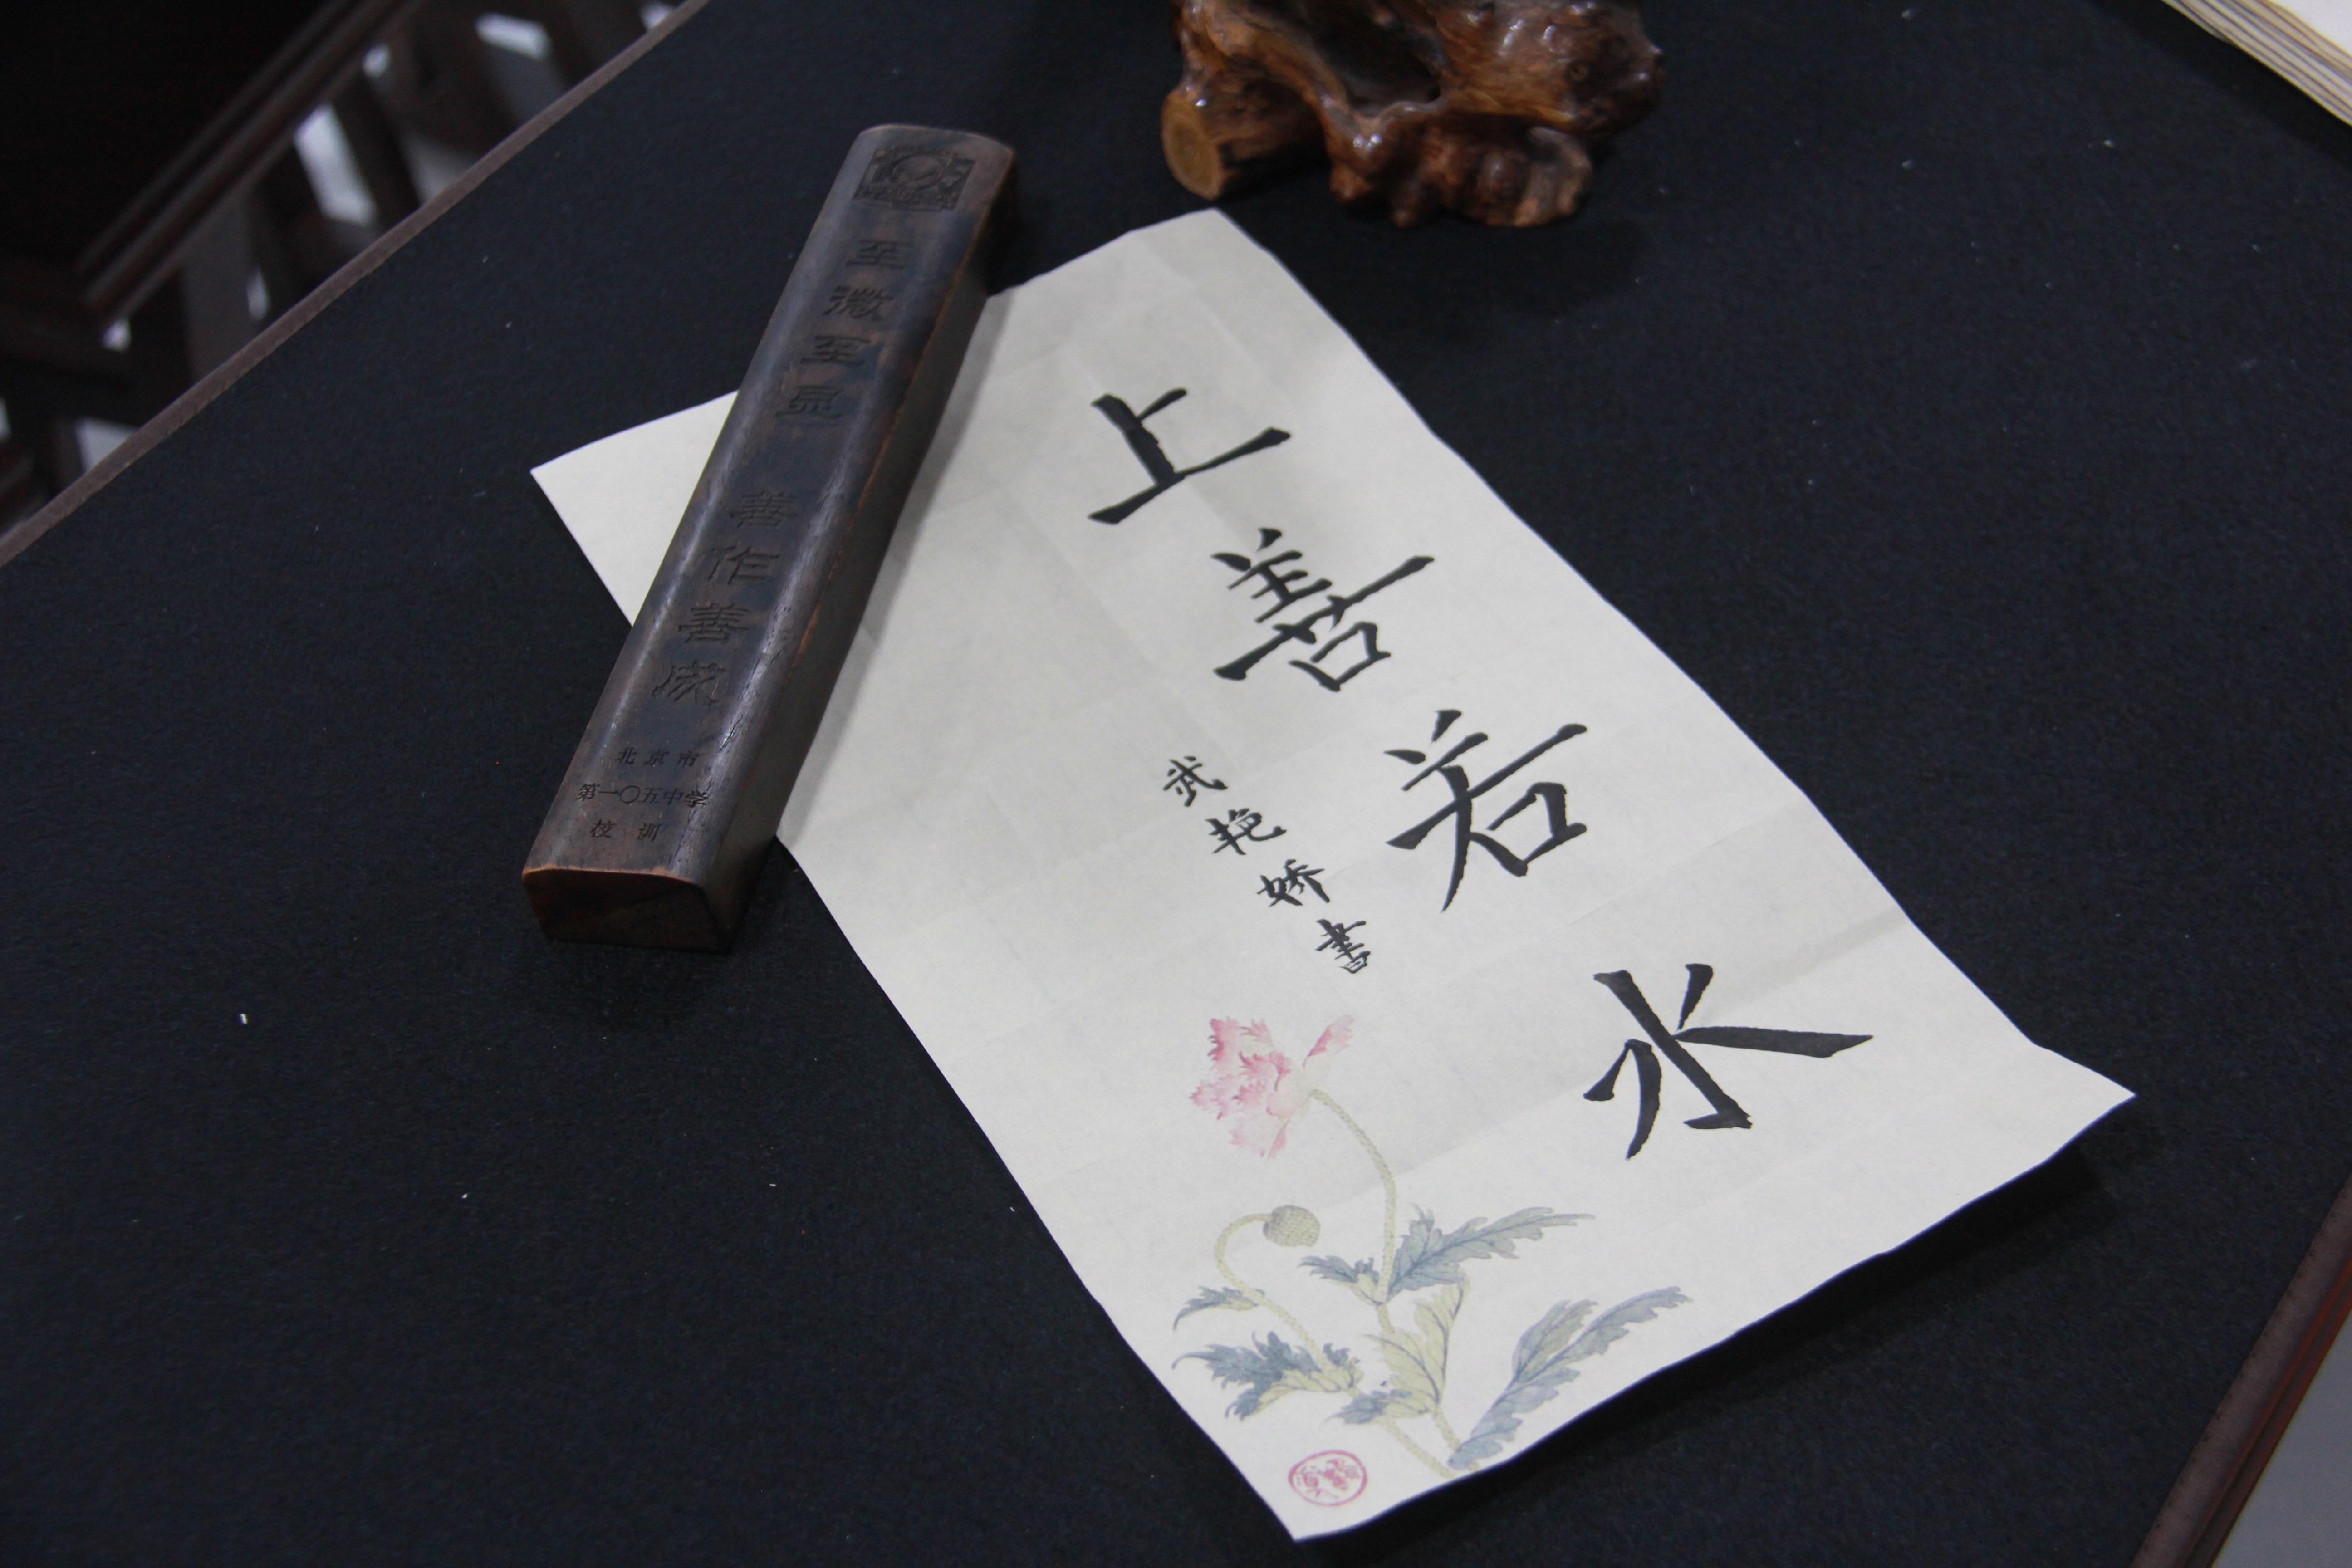 至微至显 善作善成
北京市
第一〇五中学
校训
上善若水
武艳娇書